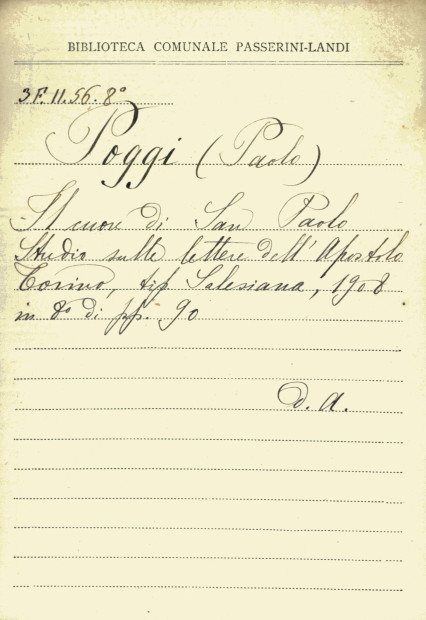 BIBLIOTECA COMUNALE PASSERINI-LANDI
3F.11.56.8°
Poggi (Paolo)
Il cuore di San Paolo
Studio sulle lettere dell' Apostolo
Torino, tip. Salesiana, 1908
in 8° di pp. 90
D. A.